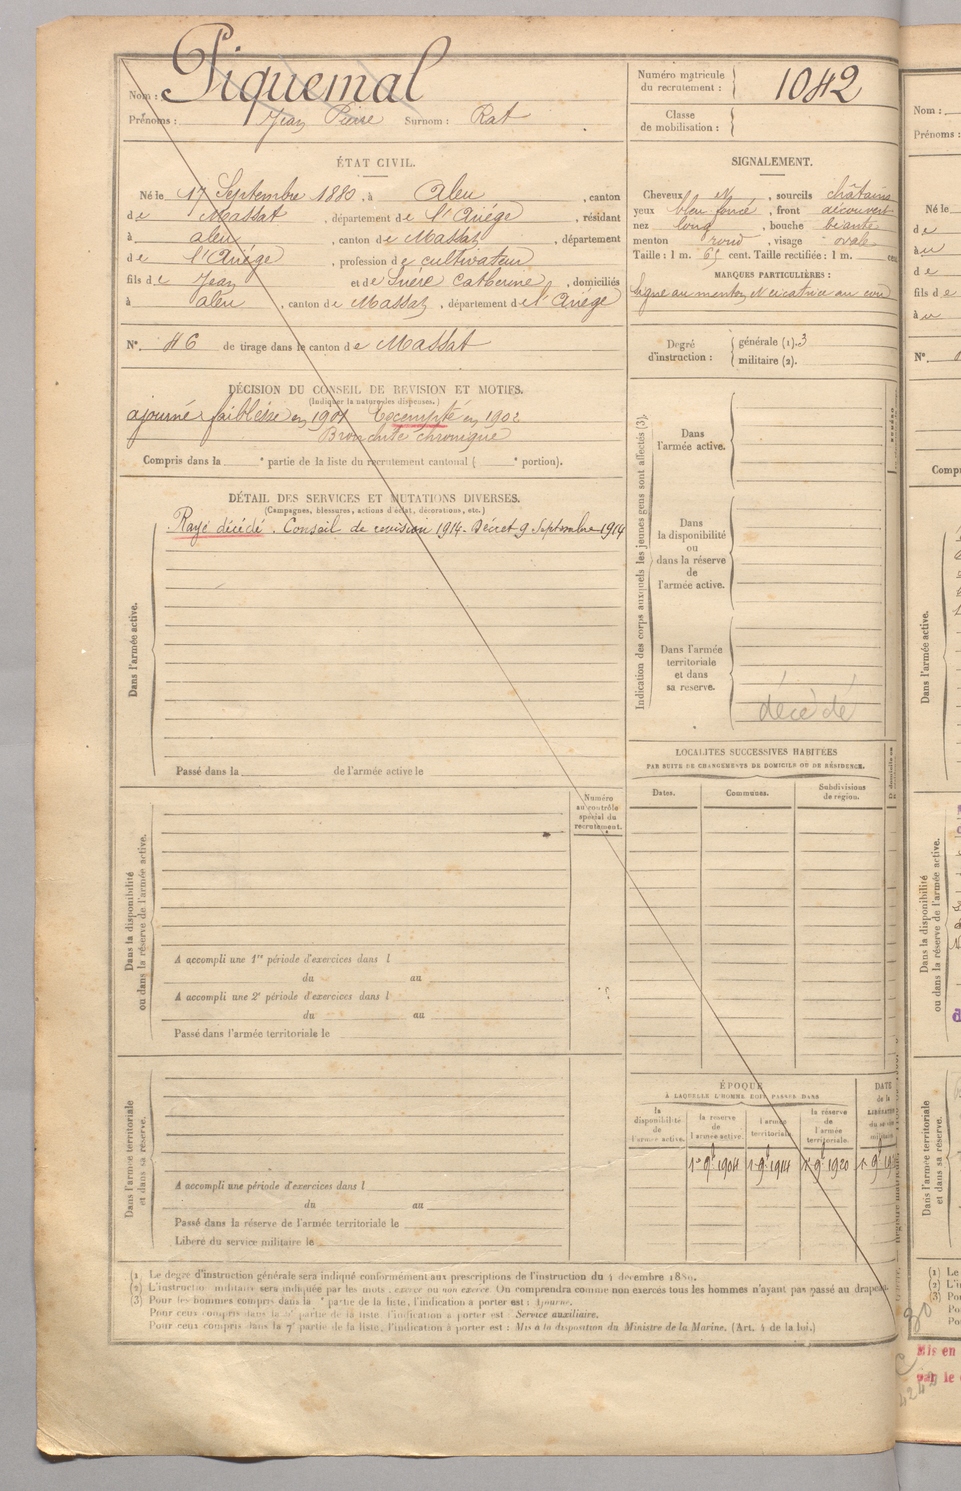 Nom : Piquemal
Prénoms : Jean Pierre Surnom : Rat
Numéro matricule
du recrutement : 1042
Classe
de mobilisation :
ÉTAT CIVIL.
Né le 17 Septembre 1880, à Aleu, canton
de Massat, département de l'Ariége, résidant
à aleu, canton de Massat, département
de l'Ariége, profession de cultivateur
fils de Jean et de Suère Catherine, domiciliés
à aleu, canton de Massat, département de l'Ariége
N° 46 de tirage dans le canton de Massat
SIGNALEMENT.
Cheveux et, sourcils châtains
yeux bleu foncé, front découvert
nez long, bouche béante
menton rond, visage ovale
Taille : 1 m. 65 cent. Taille rectifiée : 1 m. cent
MARQUES PARTICULIÈRES :
Signe au menton et cicatrice au cou
Degré
d'instruction :
générale (1). 3
militaire (2).
DÉCISION DU CONSEIL DE REVISION ET MOTIFS.
(Indiquer la nature des dispenses.)
ajourné faiblesse en 1901 Exempté en 1902
Bronchite chronique
Compris dans la e partie de la liste du recrutement cantonal ( e portion).
DÉTAIL DES SERVICES ET MUTATIONS DIVERSES.
(Campagnes, blessures, actions d'éclat, décorations, etc.)
Rayé décédé. Conseil de revision 1914. Décret 9 Septembre 1914
Dans l'armée active.
Passé dans la de l'armée active le
Indication des corps auxquels les jeunes gens sont affectés (3).
Dans
l'armée active.
Dans
la disponibilité
ou
dans la réserve
de
l'armée active.
Dans l'armée
territoriale
et dans
sa reserve.
décédé
LOCALITÉS SUCCESSIVES HABITÉES
PAR SUITE DE CHANGEMENTS DE DOMICILE OU DE RÉSIDENCE.
Dates. Communes. Subdivisions
de région.
Numéro
au contrôle
spécial du
recrutement.
Dans la disponibilité
ou dans la réserve de l'armée active.
A accompli une 1re période d'exercices dans l
du au
A accompli une 2e période d'exercices dans l
du au
Passé dans l'armée territoriale le
Dans l'armée territoriale
et dans sa réserve.
A accompli une période d'exercices dans l
du au
Passé dans la réserve de l'armée territoriale le
Libéré du service militaire le
ÉPOQUE
À LAQUELLE L'HOMME DOIT PASSER DANS
DATE
de la
la
disponibilité
de
l'armée active.
la réserve
de
l'armée active.
l'armée
territoriale.
la réserve
de
l'armée
territoriale.
1er 9bre 1904 1er 9bre 1914 1er 9bre 1920
(1) Le degré d'instruction générale sera indiqué conformément aux prescriptions de l'instruction du 4 décembre 1889.
(2) L'instruction militaire sera indiquée par les mots : exercé ou non exercé. On comprendra comme non exercés tous les hommes n'ayant pas passé au drapeau.
(3) Pour les hommes compris dans la partie de la liste, l'indication à porter est : Ajourné.
Pour ceux compris dans la partie de la liste, l'indication à porter est : Service auxiliaire.
Pour ceux compris dans la 7e partie de la liste, l'indication à porter est : Mis à la disposition du Ministre de la Marine. (Art. 4 de la loi.)
Nom :
Prénoms :
Né le
de
à
de
fils de
à
N°
Dans l'armée active.
Dans la disponibilité
ou dans la réserve de l'armée active.
Dans l'armée territoriale
et dans sa réserve.
(1) Le
(2)
(3) Pou
Mis en
par le